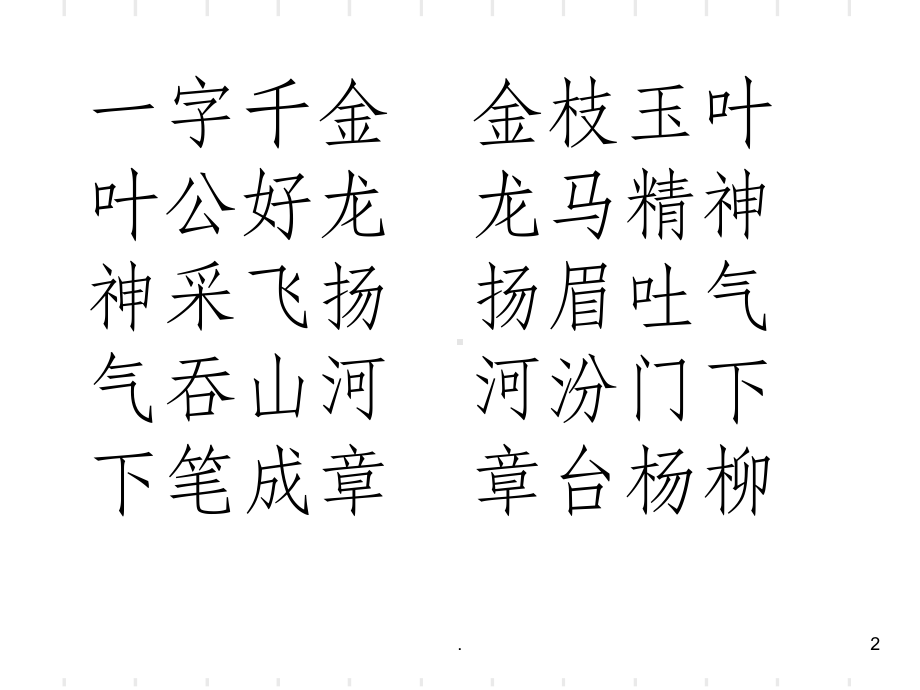 一字千金 金枝玉叶
叶公好龙 龙马精神
神采飞扬 扬眉吐气
气吞山河 河汾门下
下笔成章 章台杨柳
.
2